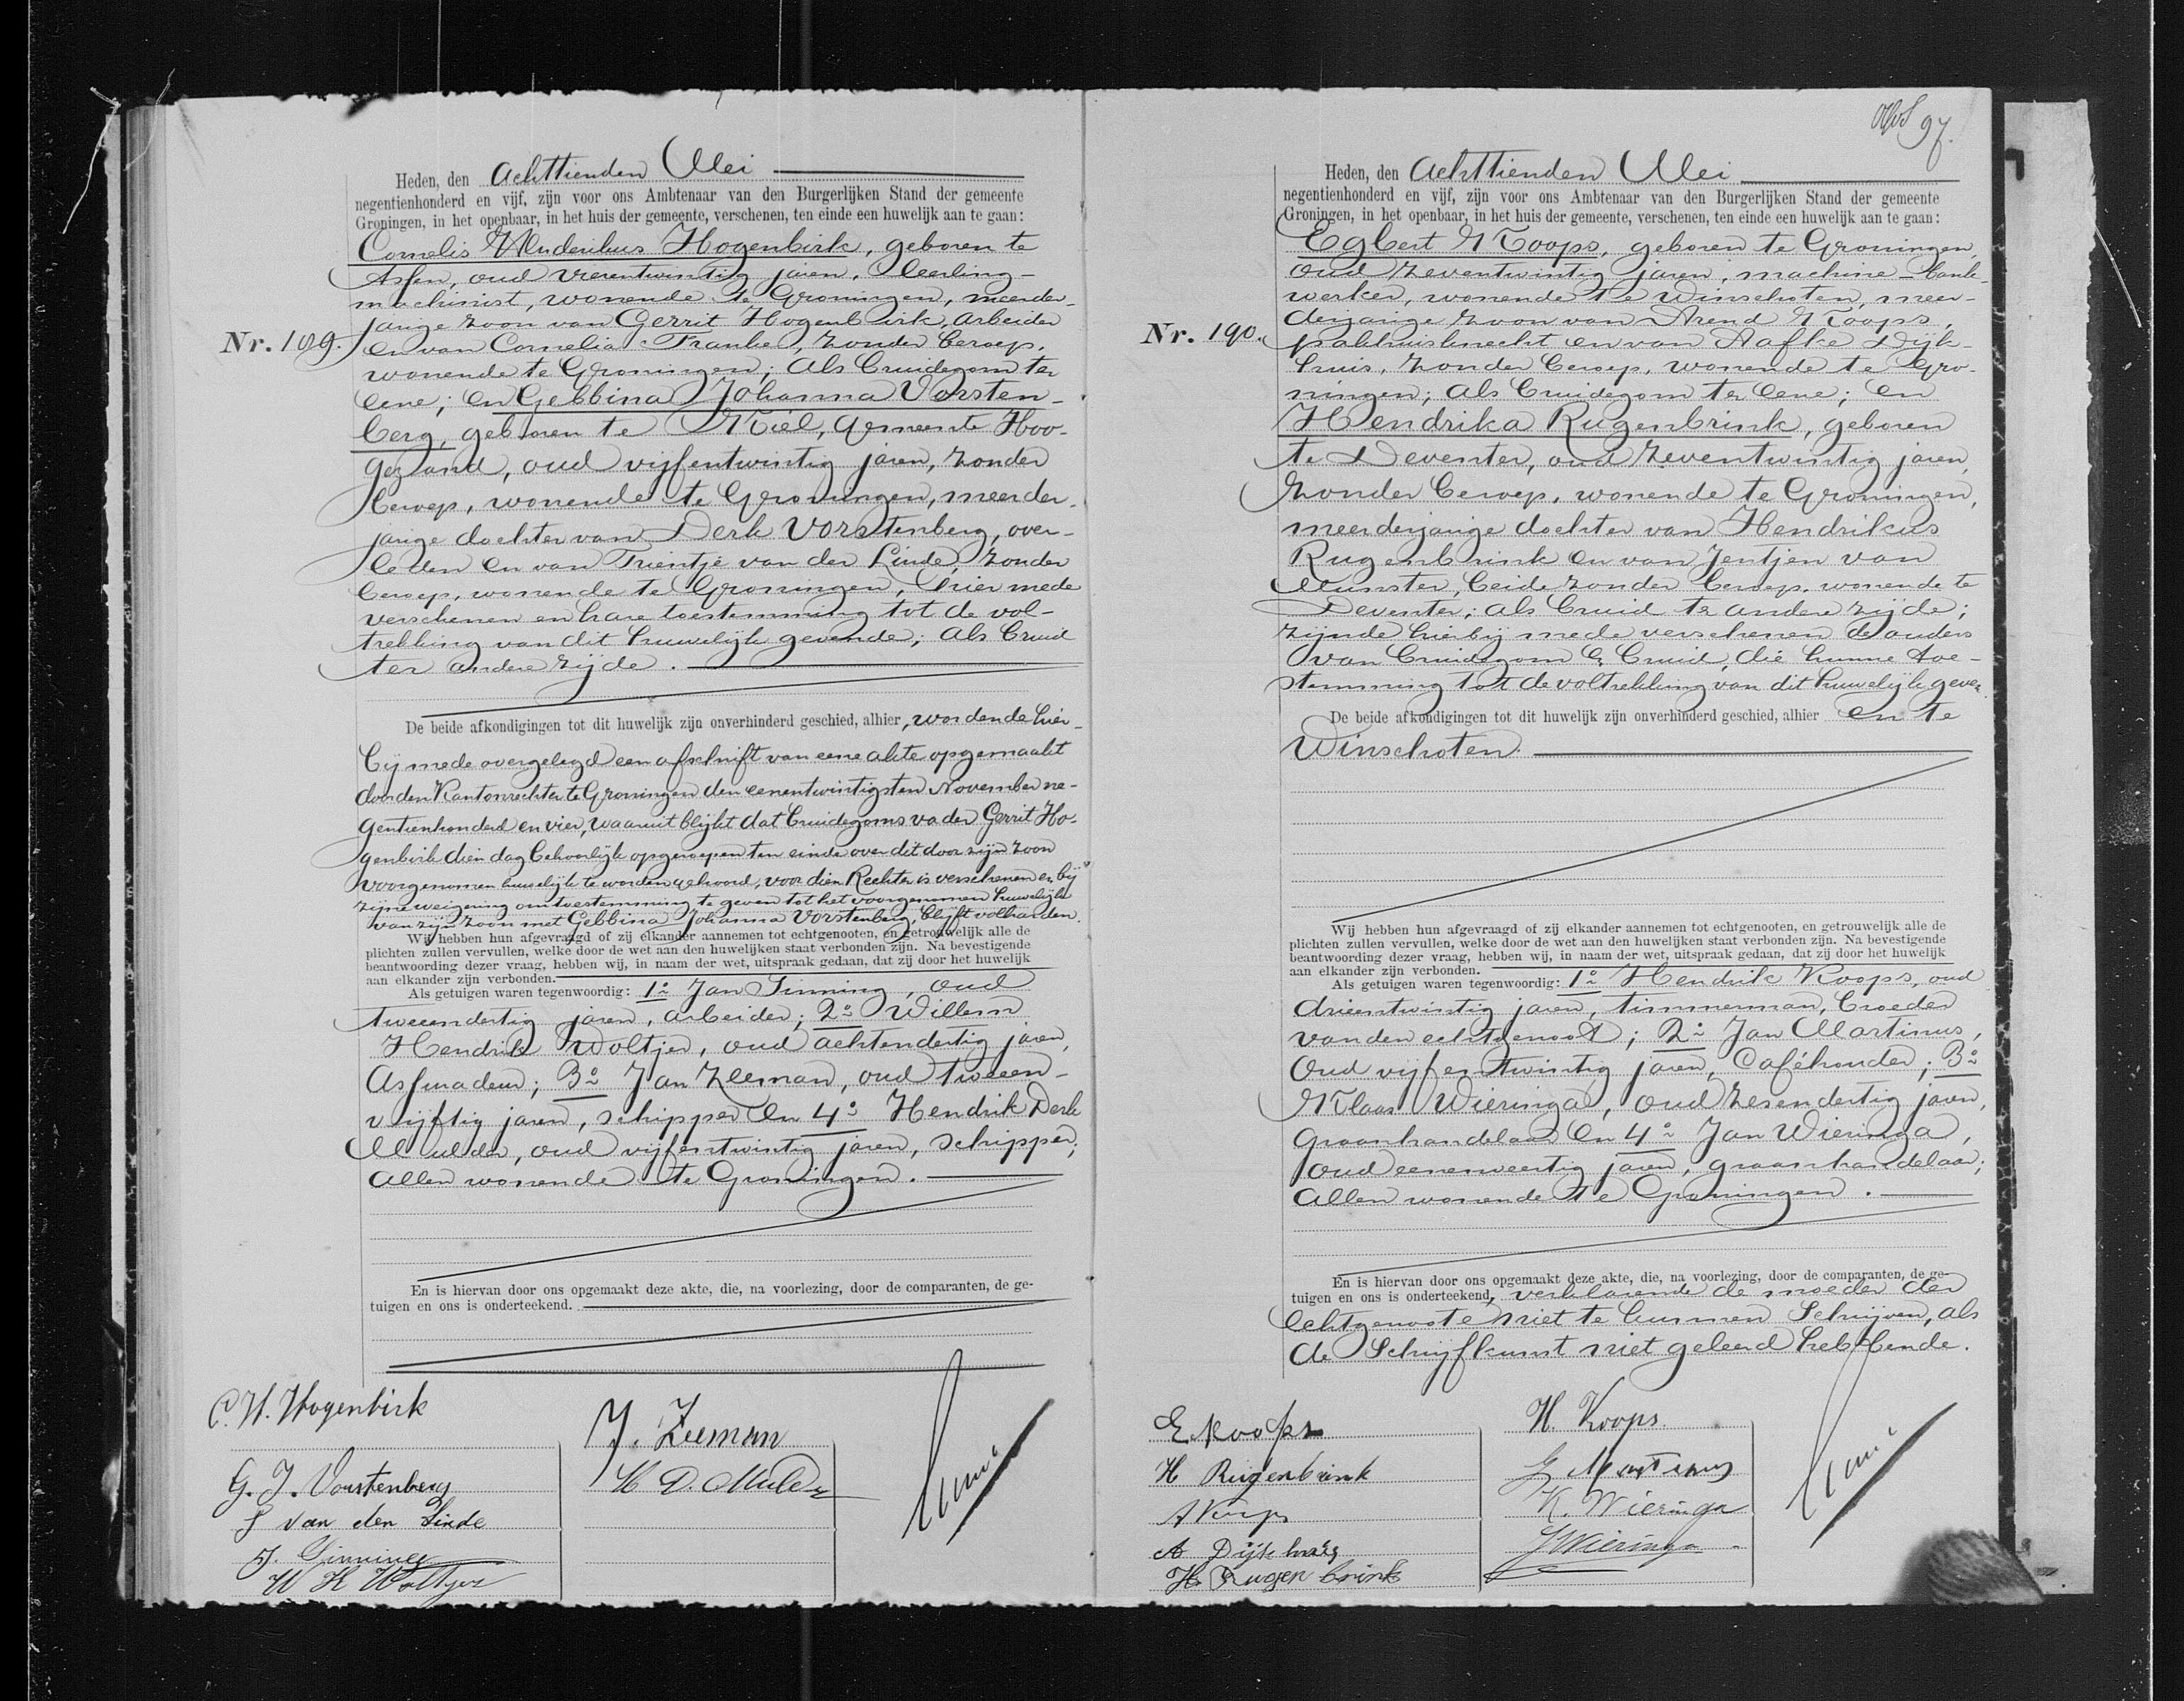 Heden, den Achttienden Mei
negentienhonderd en vijf, zijn voor ons Ambtenaar van den Burgerlijken Stand der gemeente
Groningen, in het openbaar, in het huis der gemeente, verschenen, ten einde een huwelijk aan te gaan:
Cornelis Hogenbirk, geboren te
Assen, oud vierentwintig jaren, leerling-
machinist, wonende te Groningen, meerder-
jarige zoon van Gerrit Hogenbirk, arbeider
Nr. 189. en van Cornelia Franke, zonder beroep,
wonende te Groningen; als bruidegom ter
eene; en Gebbina Johanna Vorsten-
berg, geboren te Kiel, gemeente Hoo-
gezand, oud vijfentwintig jaren, zonder
beroep, wonende te Groningen, meerder-
jarige dochter van Derk Vorstenberg, over-
leden en van Trientje van der Linde, zonder
beroep, wonende te Groningen, hier mede
verschenen en hare toestemming tot de vol-
trekking van dit huwelijk gevende; als bruid
ter andere zijde.
De beide afkondigingen tot dit huwelijk zijn onverhinderd geschied, alhier, wordende hier-
bij mede overgelegd een afschrift van eene akte opgemaakt
door den Kantonrechter te Groningen den eenentwintigsten November ne-
gentienhonderd en vier, waaruit blijkt dat bruidegoms vader Gerrit Ho-
genbirk dien dag behoorlijk opgeroepen ten einde over dit door zijn zoon
voorgenomen huwelijk te worden gehoord, voor dien Rechter is verschenen en bij
zijne weigering om toestemming te geven tot het voorgenomen huwelijk
van zijn zoon met Gebbina Johanna Vorstenberg, blijft volharden.
Wij hebben hun afgevraagd of zij elkander aannemen tot echtgenooten, en getrouwelijk alle de
plichten zullen vervullen, welke door de wet aan den huwelijken staat verbonden zijn. Na bevestigende
beantwoording dezer vraag, hebben wij, in naam der wet, uitspraak gedaan, dat zij door het huwelijk
aan elkander zijn verbonden.
Als getuigen waren tegenwoordig: 1º Jan Sinning, oud
tweeendertig jaren, arbeider; 2º Willem
Hendrik Woltjer, oud achtendertig jaren,
assuradeur; 3º Jan Zeeman, oud tweeen-
vijftig jaren, schipper en 4º Hendrik Derk
Mulder, oud vijfentwintig jaren, schipper;
allen wonende te Groningen.
En is hiervan door ons opgemaakt deze akte, die, na voorlezing, door de comparanten, de ge-
tuigen en ons is onderteekend.
C. H. Hogenbirk
G. J. Vorstenberg
van der Linde
J. Sinning
W H Woltjer
J. Zeeman
H D. Mulder
97.
Heden, den Achttienden Mei
negentienhonderd en vijf, zijn voor ons Ambtenaar van den Burgerlijken Stand der gemeente
Groningen, in het openbaar, in het huis der gemeente, verschenen, ten einde een huwelijk aan te gaan:
Egbert Koops, geboren te Groningen,
oud zeventwintig jaren, machine-bank-
werker, wonende te Winschoten, meer-
derjarige zoon van Arend Koops,
Nr. 190. pakhuisknecht en van Aafke Dijk-
huis, zonder beroep, wonende te Gro-
ningen; als bruidegom ter eene; en
Hendrika Rugenbrink, geboren
te Deventer, oud zeventwintig jaren,
zonder beroep, wonende te Groningen,
meerderjarige dochter van Hendrikus
Rugenbrink en van Jentjen van
Munster, beide zonder beroep, wonende te
Deventer; als bruid ter andere zijde;
zijnde hierbij mede verschenen de ouders
van bruidegom & bruid, die hunne toe-
stemming tot de voltrekking van dit huwelijk geven.
De beide afkondigingen tot dit huwelijk zijn onverhinderd geschied, alhier en te
Winschoten.
Wij hebben hun afgevraagd of zij elkander aannemen tot echtgenooten, en getrouwelijk alle de
plichten zullen vervullen, welke door de wet aan den huwelijken staat verbonden zijn. Na bevestigende
beantwoording dezer vraag, hebben wij, in naam der wet, uitspraak gedaan, dat zij door het huwelijk
aan elkander zijn verbonden.
Als getuigen waren tegenwoordig: 1º Hendrik Koops, oud
drieentwintig jaren, timmerman, broeder
van den echtgenoot; 2º Jan Martinus,
oud vijfentwintig jaren, caféhouder; 3º
Klaas Wieringa, oud zesendertig jaren,
graanhandelaar en 4º Jan Wieringa,
oud eenenveertig jaren, graanhandelaar;
allen wonende te Groningen.
En is hiervan door ons opgemaakt deze akte, die, na voorlezing, door de comparanten, de ge-
tuigen en ons is onderteekend, verklarende de moeder der
echtgenoote niet te kunnen schrijven, als
de schrijfkunst niet geleerd hebbende.
E Koops
H Rugenbrink
A Koops
A Dijkhuis
H. Rugenbrink
H. Koops
J Martinus
K. Wieringa
J Wieringa